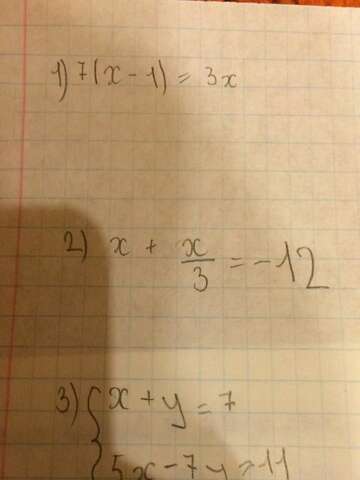 1) 7(x - 1) = 3x
2) x + x/3 = -12
3) { x + y = 7
5x - 7y = 11